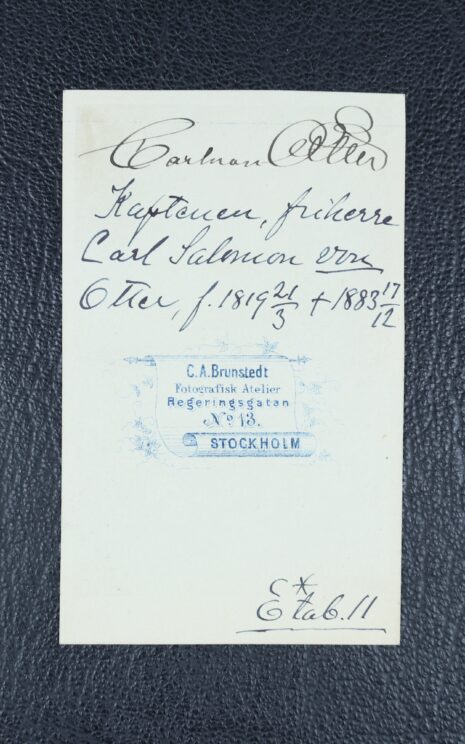 Carl von Otter
Kaptenen, friherre
Carl Salomon von
Otter, f. 1819 21/3 + 1883 17/12
C.A. Brunstedt
Fotografisk Atelier
Regeringsgatan
No 13.
STOCKHOLM
E* tab. 11